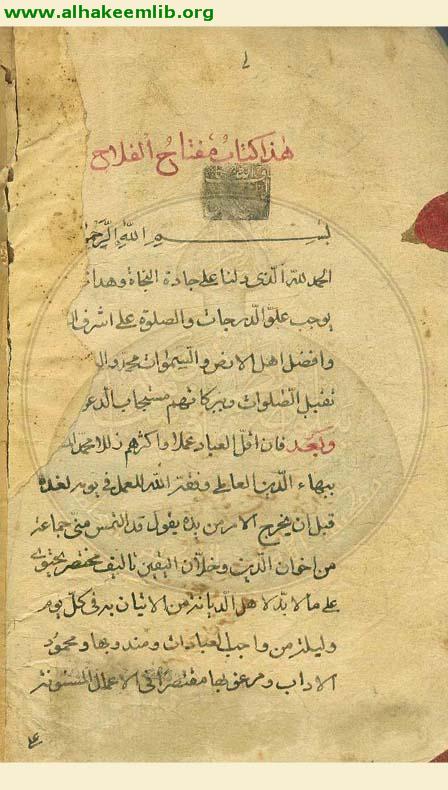 www.alhakeemlib.org
هذا كتاب مفتاح الفلاح
بسم الله الرحمن
الحمد لله الذي دلنا على جادة النجاة وهدانا
يوجب علو الدرجات والصلوة على اشرف
وافضل اهل الارض والسموات محمد واله
تقبل الصلوات وببركاتهم يستجاب الدعو
وبعد فان اقل العباد عملا واكثرهم زللا محمد
ببهاء الدين العاملي وفقه الله للعمل في يومه لغده
قبل ان يخرج الامر من يده يقول قد التمس مني جماعة
من اخوان الدين وخلان اليقين تاليف مختصر يحتوي
على ما لا بد لاهل الديانة من الاتيان به في كل يوم
وليلة من واجب العبادات ومندوبها ومحمود
الاداب ومرغوبها مقتصرا في الاعمال المسنونة